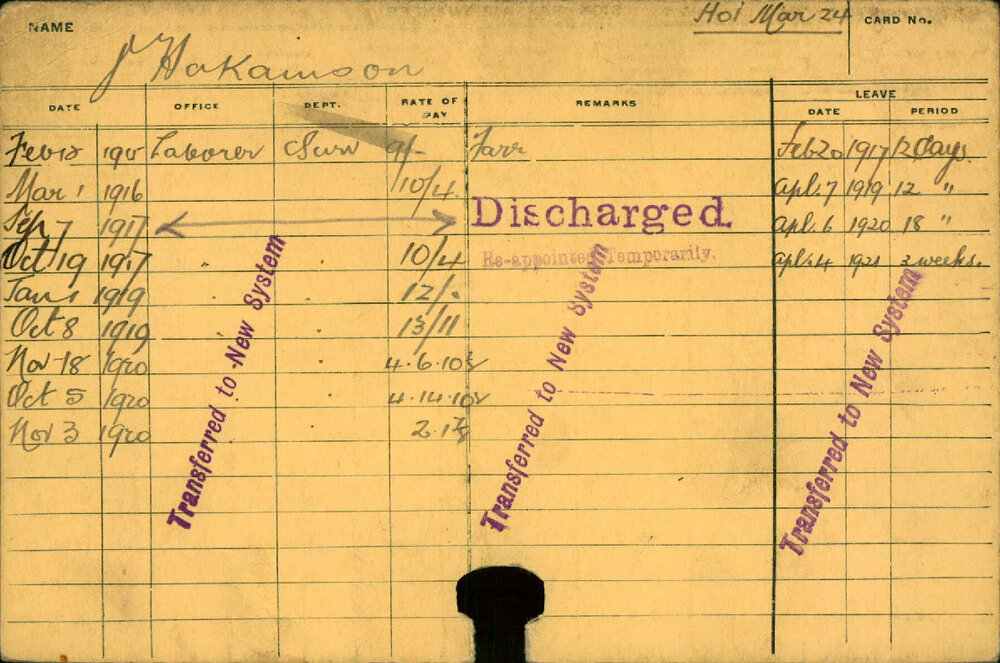 NAME Hol Mar 24 CARD No.
J Hakanson
DATE OFFICE DEPT. RATE OF PAY REMARKS LEAVE
DATE PERIOD
Feb 1915 Laborer Surv 9/- Farr Feb 20 1917 12 days.
Mar 1 1916 10/4. Apl. 7 1919 12 "
Sep 7 1917 Discharged. Apl. 6 1920 18 "
Oct 19 1917 " 10/4 Re-appointed Temporarily. Apl. 4 1921 3 weeks.
Jan 1 1919 12/.
Oct 8 1919 13/11
Nov 18 1920 4.6.10½
Oct 5 1920 4.14.10½
Nov 3 1920
Transferred to New System
Transferred to New System
Transferred to New System